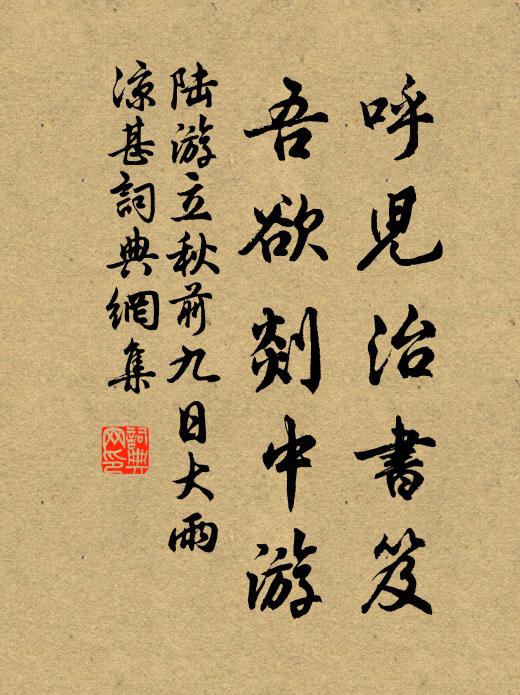 呼児治書笈
吾欲剡中游
陸游立秋前九日大雨
凉甚詞典網集
詞典網印